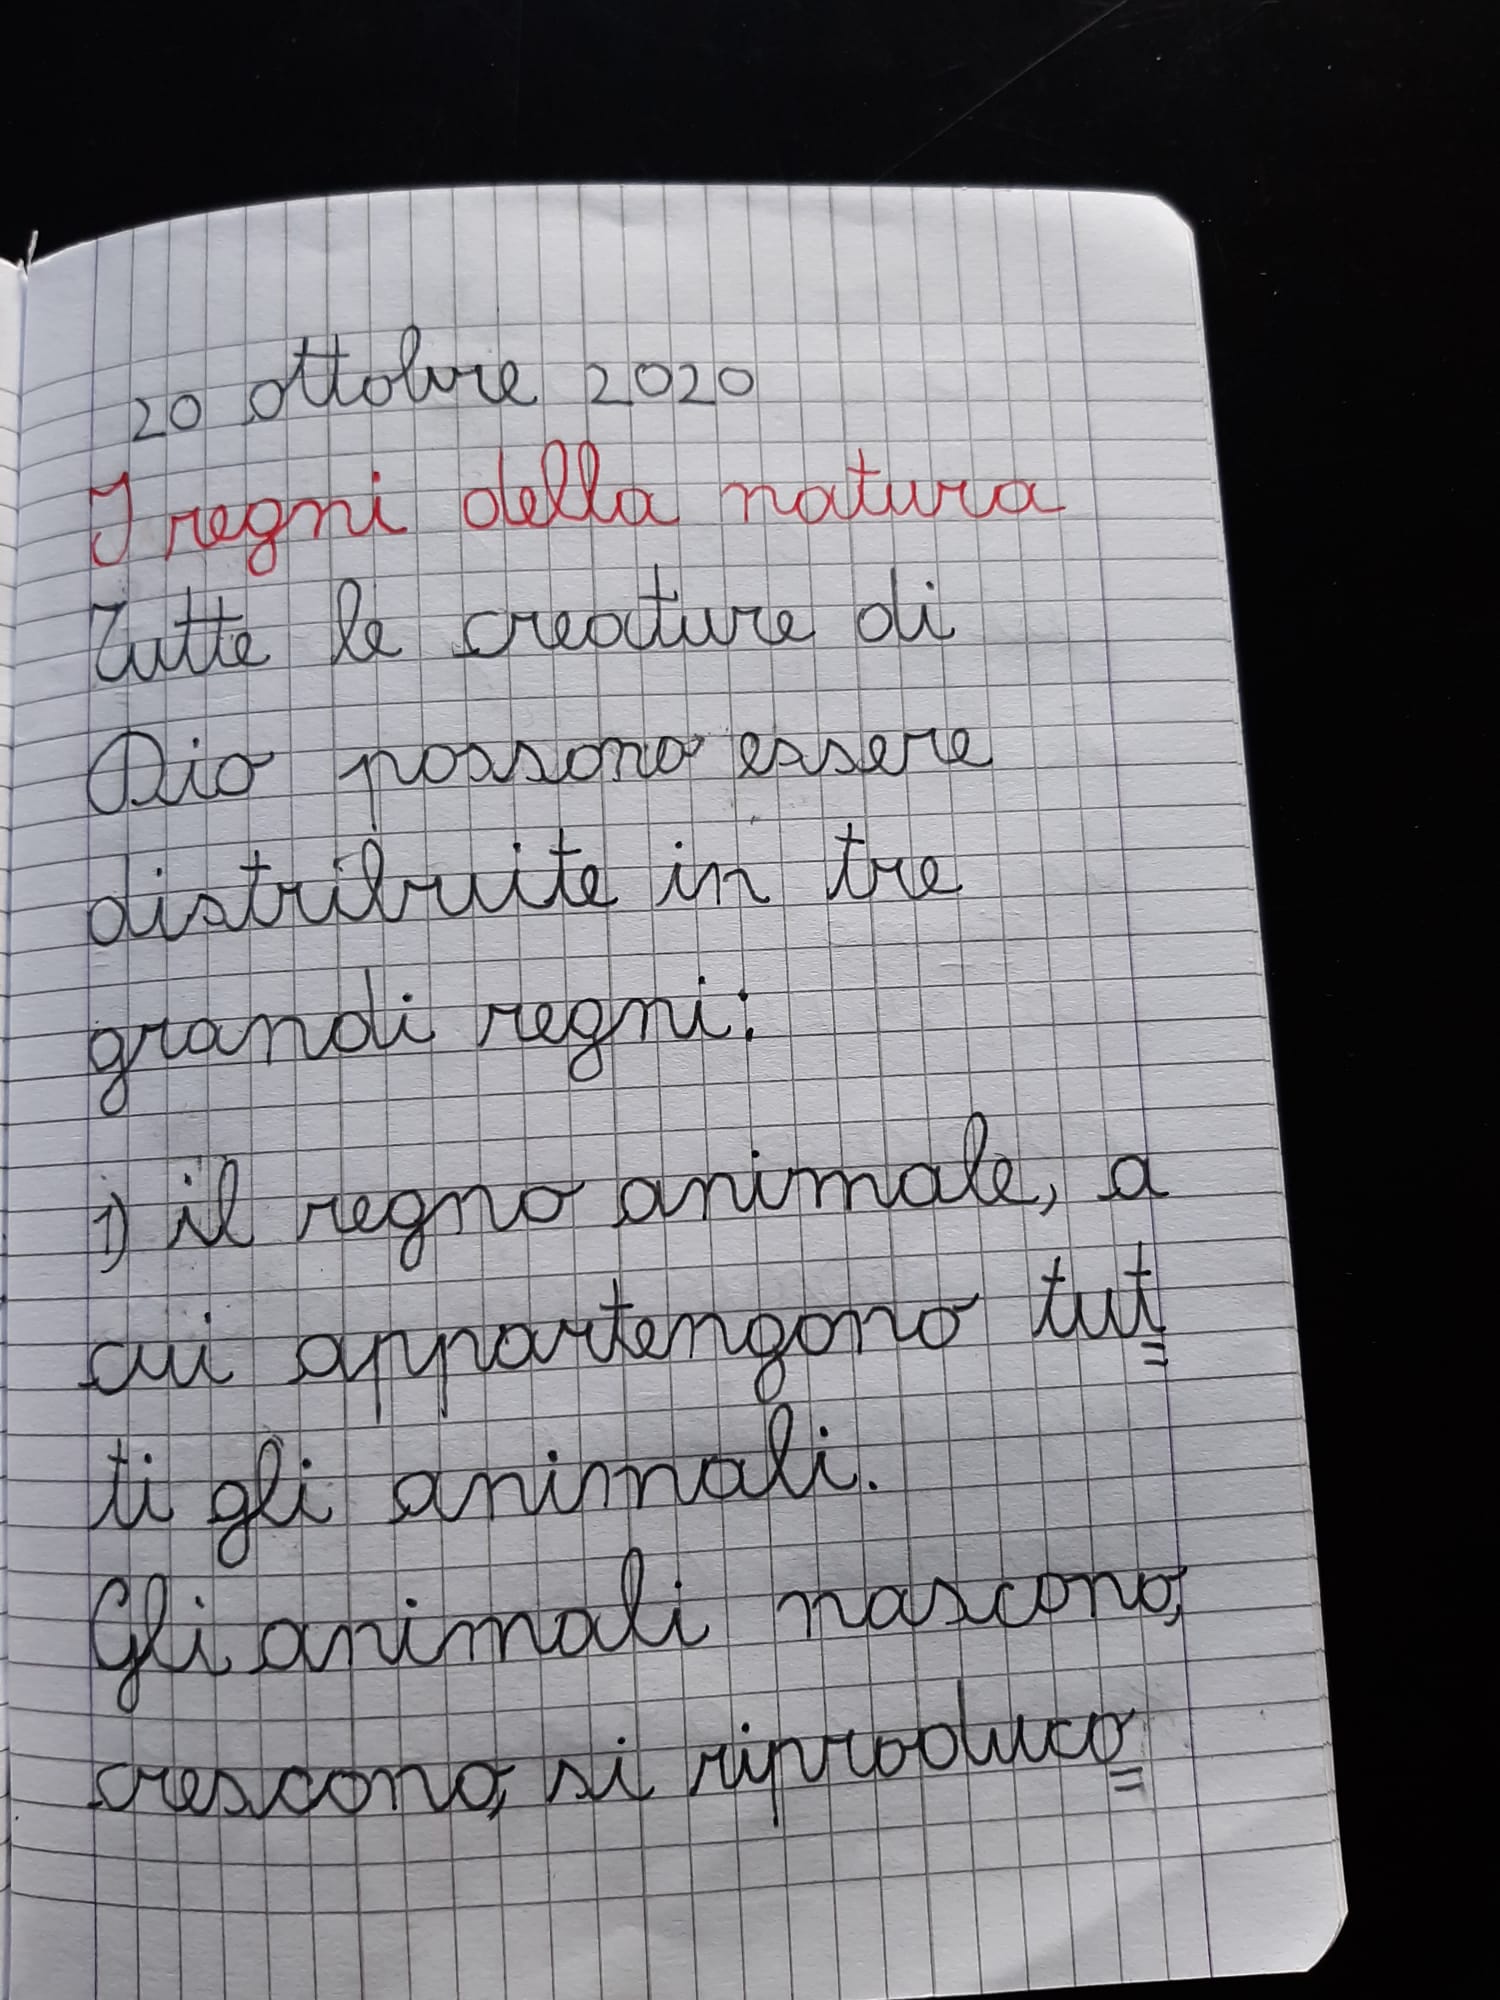 20 ottobre 2020
I regni della natura
Tutte le creature di
Dio possono essere
distribuite in tre
grandi regni:
1) il regno animale, a
cui appartengono tut=
ti gli animali.
Gli animali nascono,
crescono, si riproduco=